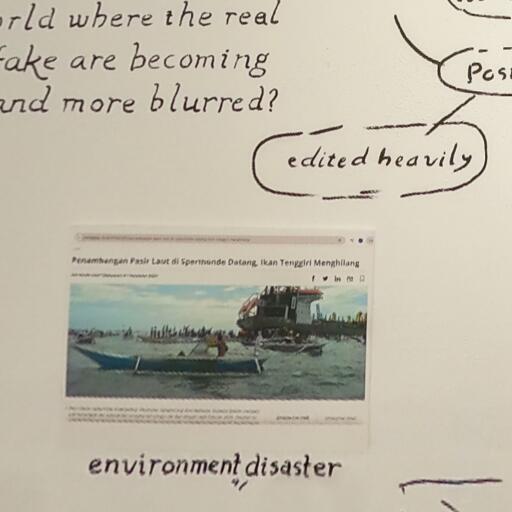 rld where the real
fake are becoming
and more blurred?
Pos
edited heavily
Penambangan Pasir Laut di Spermonde Datang, Ikan Tenggiri Menghilang
environment disaster
al